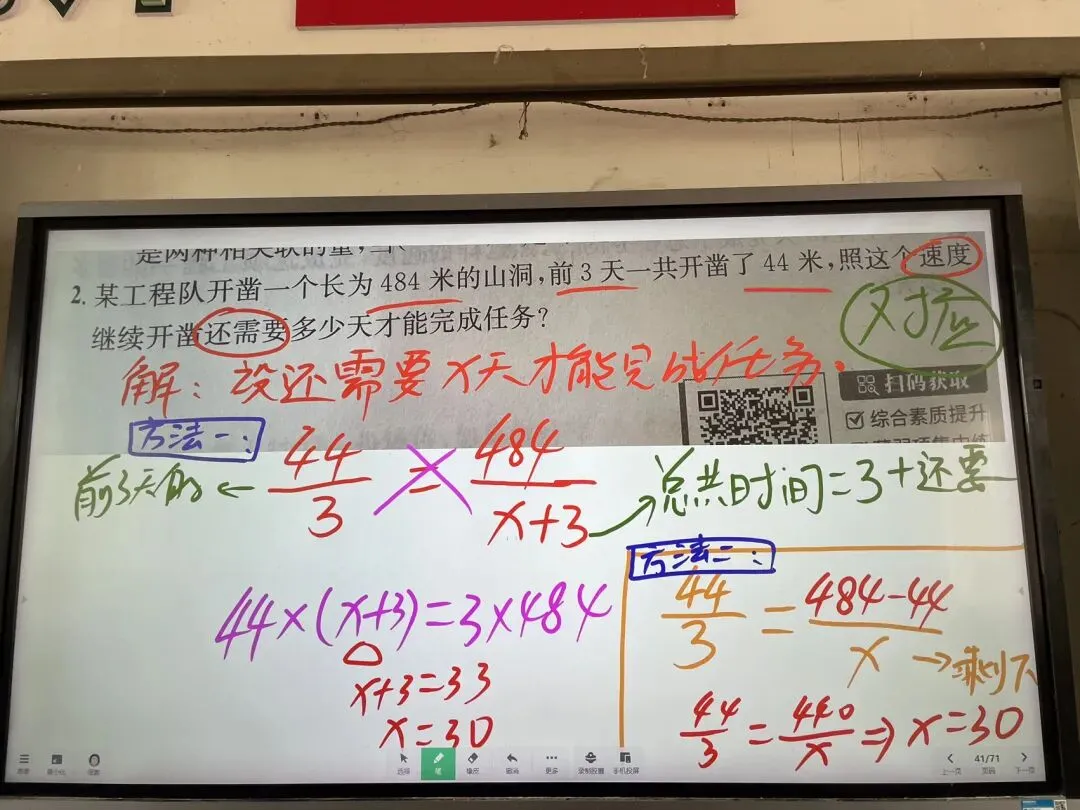 是两种相关联的量,
2. 某工程队开凿一个长为 484 米的山洞,前 3 天一共开凿了 44 米,照这个速度
继续开凿还需要多少天才能完成任务?
对应
解:设还需要x天才能完成任务.
扫码获取
综合素质提升
方法一:
前3天的 ← 44/3 = 484/(x+3) → 总共时间=3+还要
44×(x+3)=3×484
x+3=33
x=30
方法二:
44/3 = (484-44)/x → 剩下
44/3 = 440/x ⇒ x=30
选择 笔 橡皮 撤消 更多 录制设置 手机投屏
上一页 41/71 页码 下一页